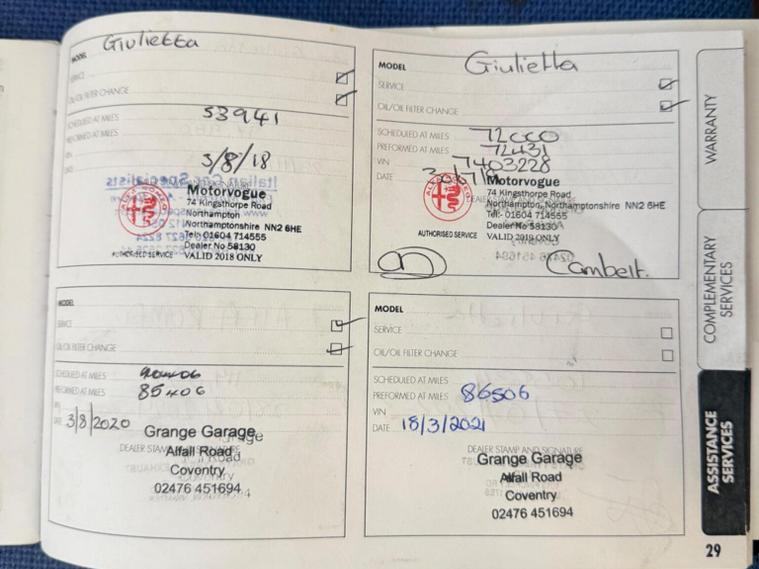 MODEL Giulietta
SERVICE
OIL/OIL FILTER CHANGE
SCHEDULED AT MILES 53941
PREFORMED AT MILES
VIN
DATE 3/8/18
Motorvogue
74 Kingsthorpe Road
Northampton
Northamptonshire NN2 6HE
Tel: 01604 714555
Dealer No 58130
VALID 2018 ONLY
ALFA ROMEO
AUTHORISED SERVICE
MODEL Giulietta
SERVICE
OIL/OIL FILTER CHANGE
SCHEDULED AT MILES 72000
PREFORMED AT MILES 72431
VIN 7403228
DATE
Motorvogue
74 Kingsthorpe Road
Northampton, Northamptonshire NN2 6HE
Tel: 01604 714555
Dealer No 58130
VALID 2019 ONLY
ALFA ROMEO
AUTHORISED SERVICE
Cambelt.
MODEL
SERVICE
OIL/OIL FILTER CHANGE
SCHEDULED AT MILES
PREFORMED AT MILES 85406
VIN
DATE 3/8/2020
DEALER STAMP AND SIGNATURE
Grange Garage
Alfall Road
Coventry
02476 451694
MODEL
SERVICE
OIL/OIL FILTER CHANGE
SCHEDULED AT MILES
PREFORMED AT MILES 86506
VIN
DATE 18/3/2021
DEALER STAMP AND SIGNATURE
Grange Garage
Alfall Road
Coventry
02476 451694
WARRANTY
COMPLEMENTARY
SERVICES
ASSISTANCE
SERVICES
29